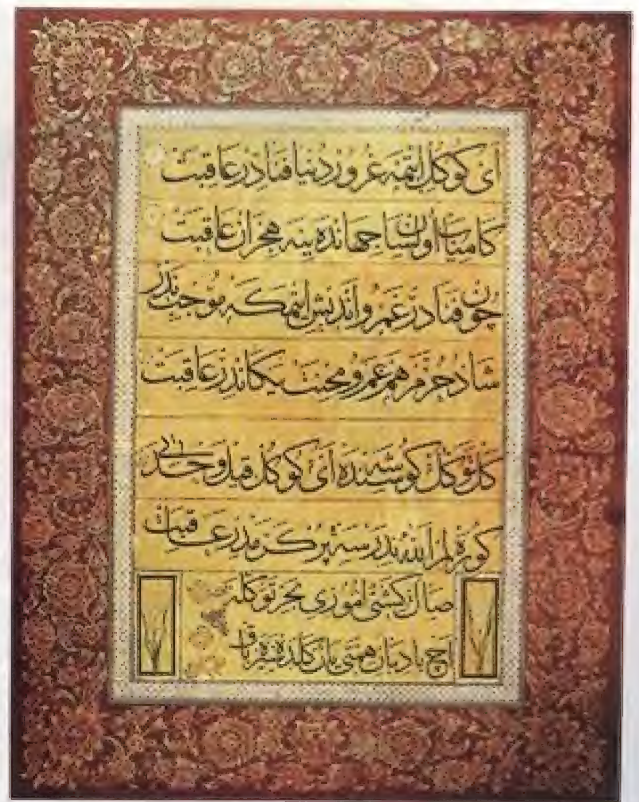 ای کوکل ایتمه غرور دنیا فنادر عاقبت
کامیاب اولسان جهانده ینه هجران عاقبت
چون فنادر غم و اندیش ایتمکه موجب ندر
شاد خرم هم غم و محنت یکاندر عاقبت
کل توکل کوشه سنده ای کوکل
کوره لم الله ندر عاقبت
صال کشتی اموری بحر توکله
آچ بادبان همتی باز کلده